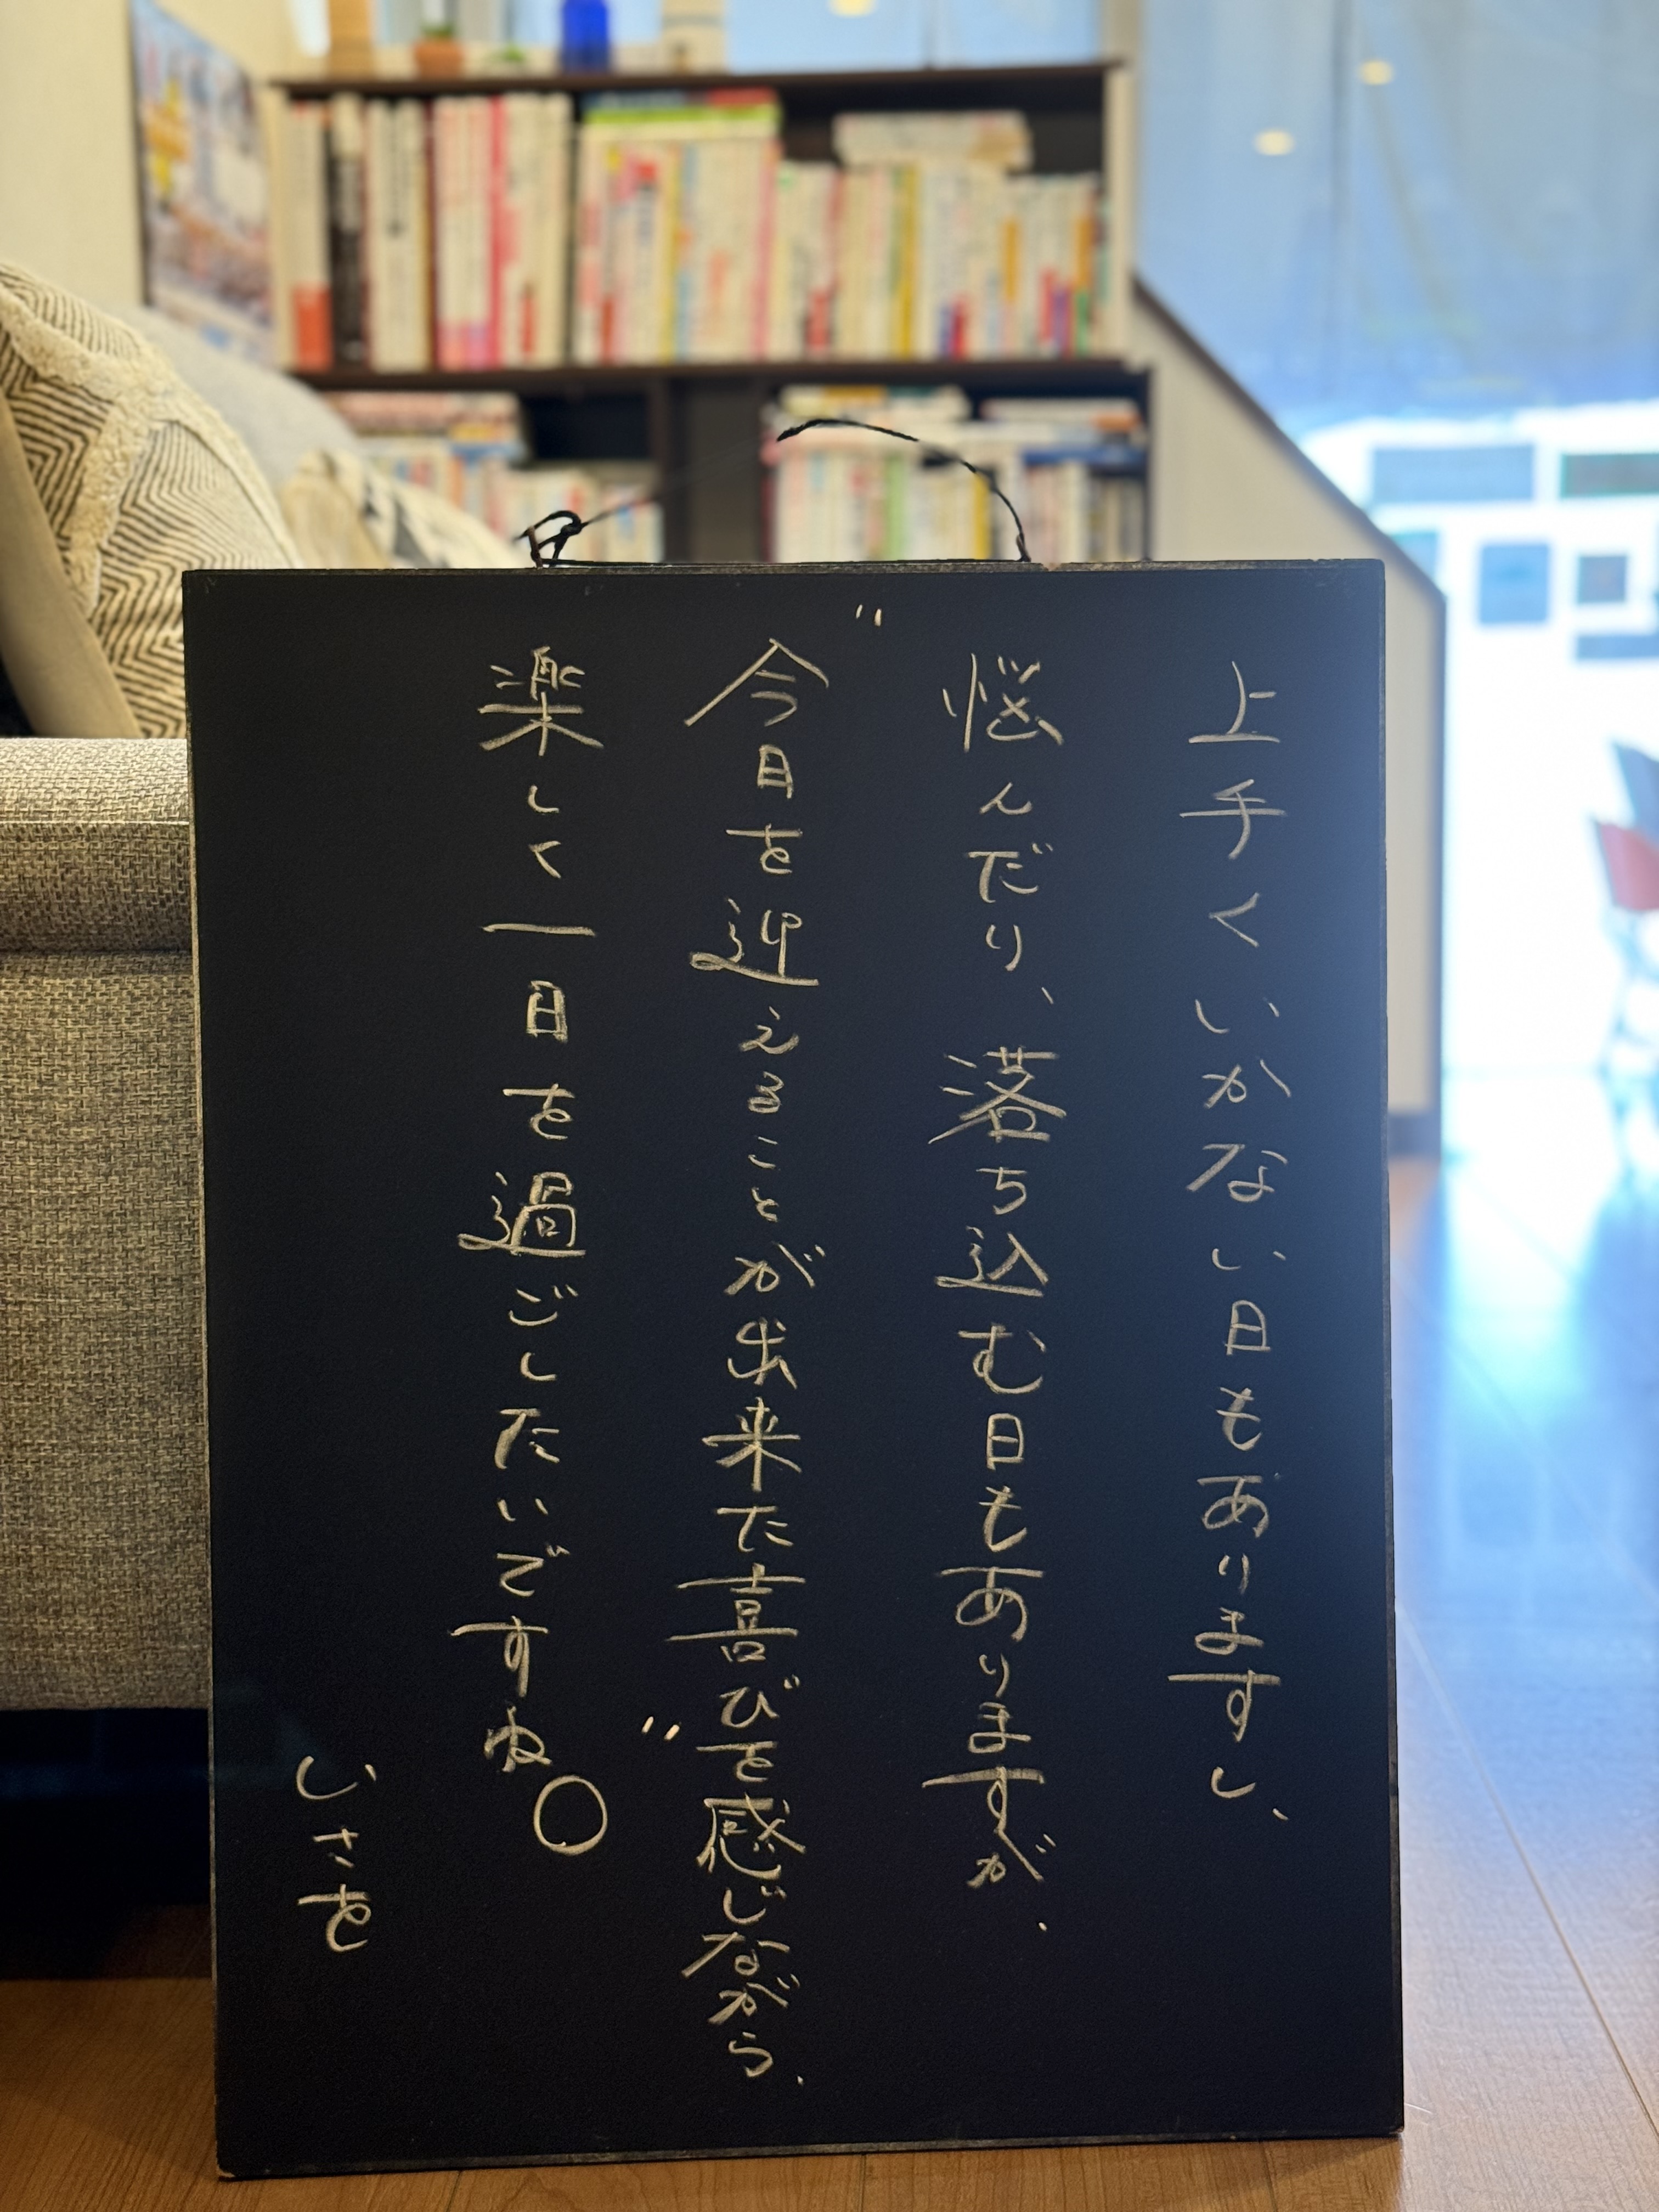 上手くいかない日もありますし、
悩んだり、落ち込む日もありますが、
"今日を迎えることが出来た喜びを感じながら、
楽しく一日を過ごしたいですね"〇
いさを